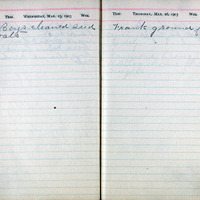 THER. WEDNESDAY, MAR. 25, 1903 WEA.
Boys cleaned seed
oats
THER. THURSDAY, MAR. 26, 1903 WEA.
Frank ground